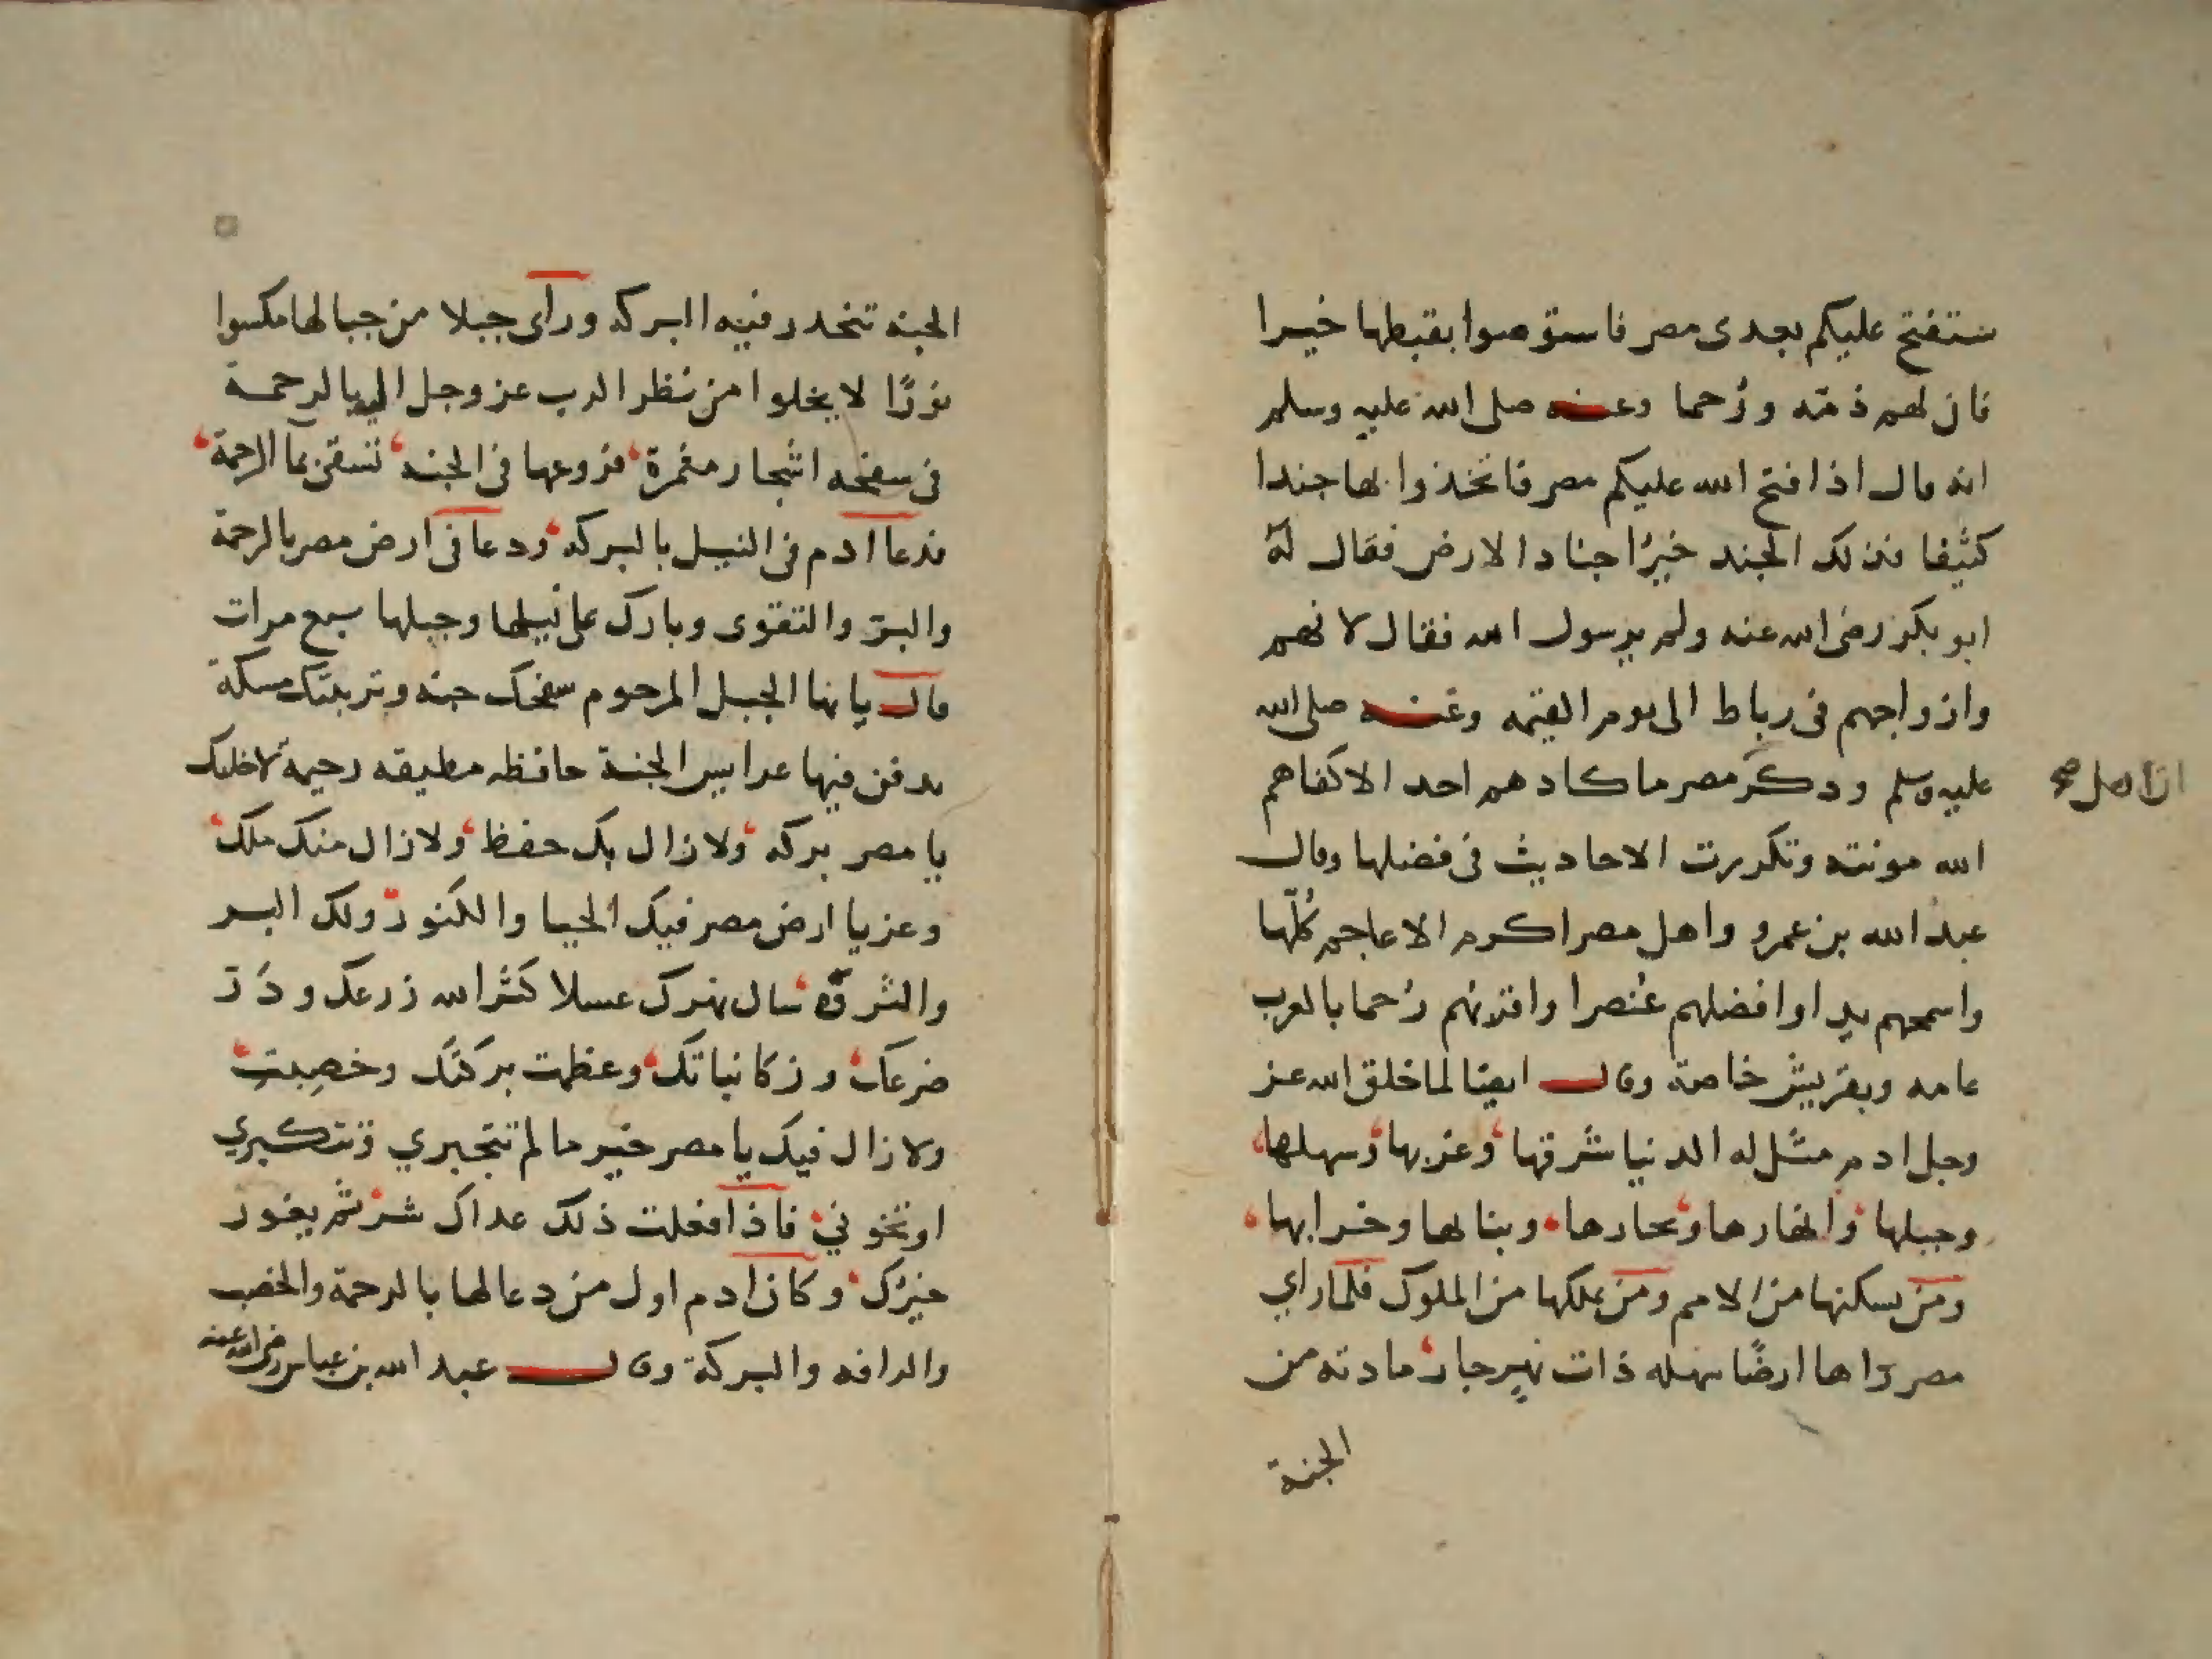 ستفتح عليكم بعدى مصر فاستوصوا بقبطها خيرا
فان لهم ذمّة ورُحما وعنه صلى الله عليه وسلم
انه قال اذا فتح الله عليكم مصر فاتخذوا بها جندا
كثيفا فذلك الجند خيرُ اجناد الارض فقال له
ابو بكر رضى الله عنه ولم يرسول الله فقال لانهم
وازواجهم فى رباط الى يوم القيمه وعنه صلى الله
عليه وسلم وذكر مصر ما كادهم احد الا كفاهم
الله مونته وتكررت الاحاديث فى فضلها وقال
عبد الله بن عمرو واهل مصر اكرم الاعاجم كُلّها
واسمحهم يدا وافضلهم عُنصرا واقربهم رُحما بالعرب
عامه وبقريش خاصة وقال ايضا لما خلق الله عز
وجل ادم مثّل له الدنيا شرقها وغربها وسهلها
وجبلها وانهارها وبحارها وبنالها وخرابها
ومَن يسكنها من الامم ومَن يملكها من الملوك فلما راي
مصر راها ارضًا سهله ذات نهرجار مادته من
الجنة
الجنه تنحدر فيه البركه وراى جبلا من جبالها مكسوا
نورًا لا يخلوا من نظر الرب عز وجل اليه بالرحمة
فى سفحه اشجار مثمرة فروعها فى الجنه تسقى بما الرحمة
فدعا ادم فى النيل بالبركه ودعا فى ارض مصر بالرحمة
والبر والتقوى وبارك على نيلها وجبلها سبع مرات
قال يايها الجبل المرحوم سفحك جنه وتربتك مسكة
يدفن فيها عرايس الجنة حافظه مطيقه رحيمة لاخلتك
يا مصر بركه ولا زال بك حفظ ولا زال منك ملك
وعز يا ارض مصر فيك الخبا والكنوز ولك البر
والثروه سال نهرك عسلا كثر الله زرعك ودَرّ
ضرعك وزكا نباتك وعظمت بركتك وخصبت
ولا زال فيك يا مصر خير ما لم تتجبري وتتكبري
او تخوني فاذا فعلت ذلك عداك شر ثم يغور
خيرك وكان ادم اول من دعا لها بالرحمة والخصب
والرافه والبركة وقال عبد الله بن عباس رضى الله عنه